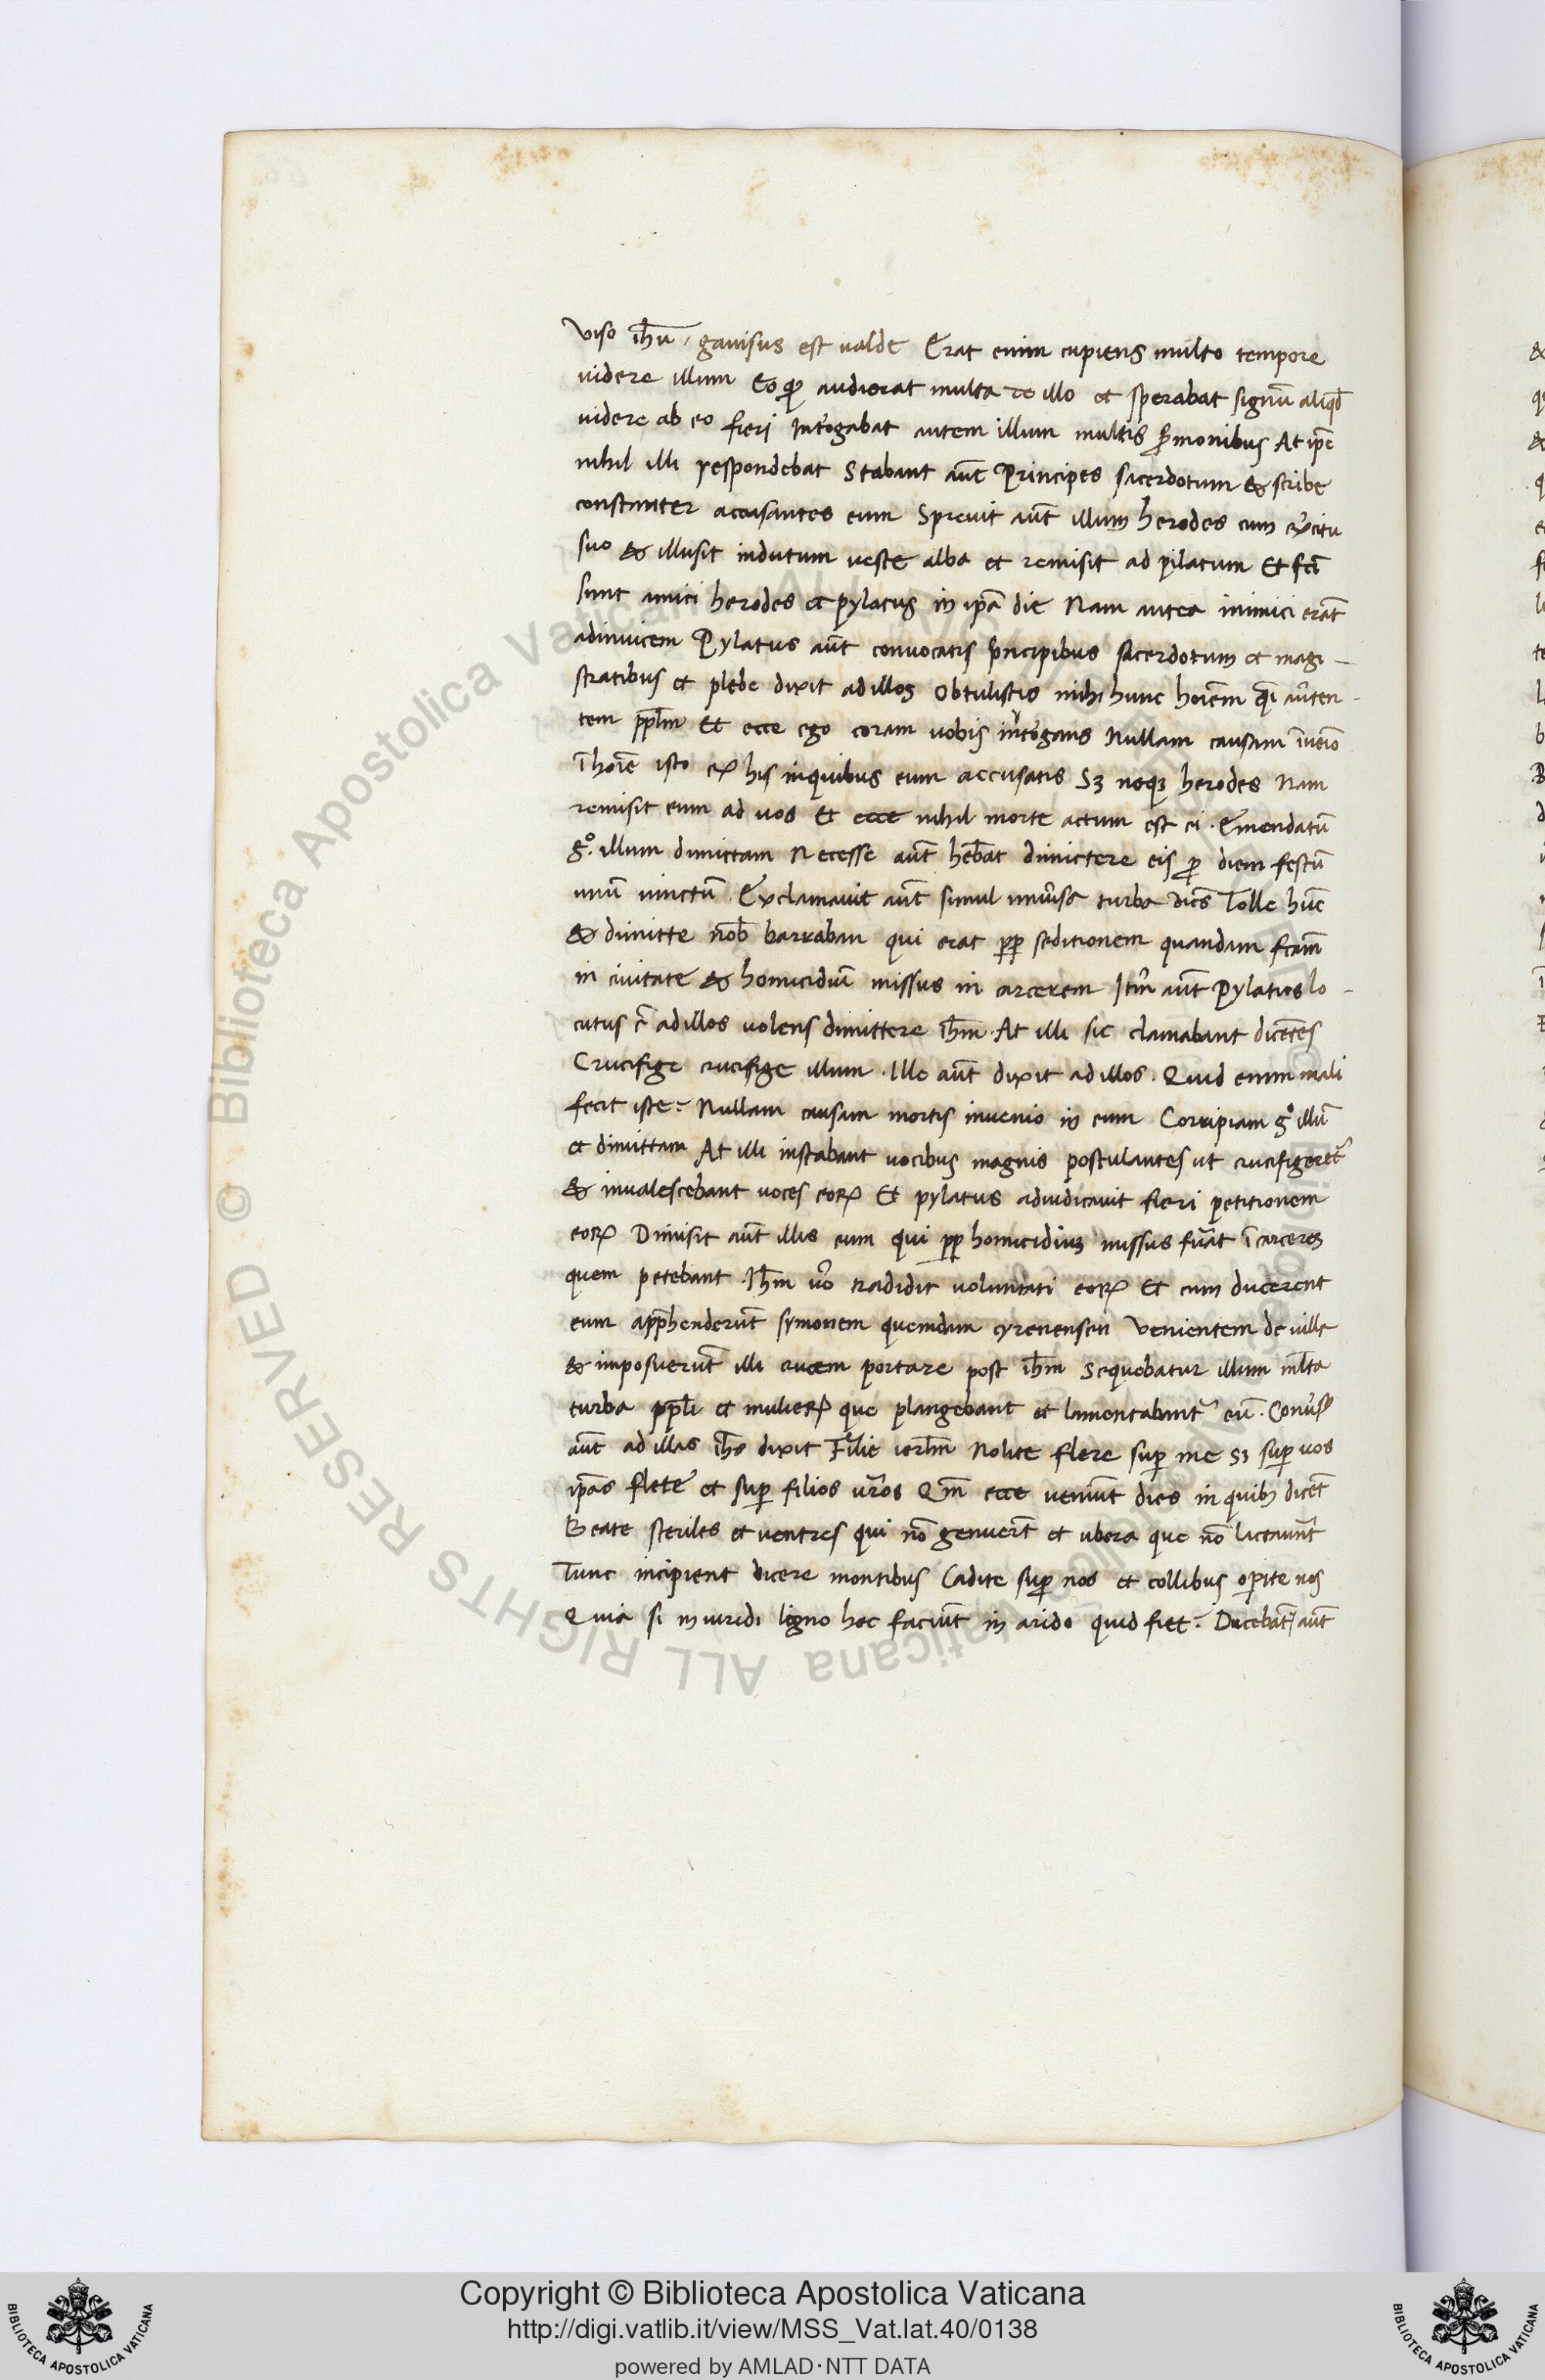 Viso ih̅u gauisus est ualde Erat enim cupiens multo tempore
uidere illum Eo qꝙ audierat multa de illo et sperabat signū aliqd̅
uidere ab eo fieri Int̅ogabat autem illum multis s̅monibus At ip̅e
nihil illi respondebat Stabant aūt Principes sacerdotum & scribe
constanter accusantes eum Spreuit aūt illum herodes cum ex̅citu
suo & illusit indutum ueste alba et remisit ad pilatum Et fc̅i
sunt amici herodes et pylatus in ip̅a die Nam antea inimici erāt
adinuicem Pylatus aūt conuocatis p̅ncipibus sacerdotum et magi-
stratibus et plebe dixit ad illos Obtulistis mihi hunc hoi̅em q̅i au̅ten-
tem pp̅lm Et ecce ego coram uobis int̅ogans Nullam causam īueīo
ī hoi̅e isto ex his in quibus eum accusatis Sꝫ neqꝫ herodes Nam
remisit eum ad uos Et ecce nihil morte actum est ei . Emendatū
gͦ. illum dimictam Necesse aūt heb̅at dimictere eis ꝑ diem festū
unū uinctū . Exclamauit aūt simul uniu̅sa turba dice̅s Tolle hūc
& dimitte nob̅ barraban qui erat ꝓp seditionem quandam fc̅am
in ciuitate & homicidiū missus in carcerem It̅m aūt Pylatus lo-
cutus ē ad illos uolens dimittere ih̅m . At illi sic clamabant dicētes
Crucifige crucifige illum . Ille aūt dixit ad illos . Quid enim mali
fecit iste? Nullam causam mortis inuenio in eum Corripiam gͦ illū
et dimittam At illi instabant uocibus magnis postulantes ut crucifigeret̅
& inualescebant uoces eoꝝ Et pylatus adiudicauit fieri petitionem
eoꝝ Dimisit aūt illis eum qui ꝓp homicidiuꝫ missus fu̅at ī carcereꝫ
quem petebant . Ih̅m u̅o tradidit uoluntati eoꝝ Et cum ducerent
eum app̅henderūt symonem quemdam cyrenensem Venientem de uilla
& imposuerūt illi crucem portare post ih̅m Sequebatur illum ml̅ta
turba pp̅li et mulieꝝ que plangebant et lamentabant̅ eū . Conu̅sꝰ
aūt ad illas ih̅s dixit Filie ierl̅m Nolite flere suꝑ me Sꝫ suꝑ uos
ip̅as flete et suꝑ filios ur̅os Qm̅ ecce ueniūt dies in quibꝫ dicēt
Beate steriles et uentres qui nō genuerūt et ubera que nō lactauer̅t
Tunc incipient dicere montibus Cadite suꝑ nos et collibus oꝑite nos
Quia si in uiridi ligno hec faciūt in arido quid fiet? Ducebāt̅ aūt
© Biblioteca Apostolica Vaticana ALL RIGHTS RESERVED
Copyright © Biblioteca Apostolica Vaticana
http://digi.vatlib.it/view/MSS_Vat.lat.40/0138
powered by AMLAD·NTT DATA
BIBLIOTECA APOSTOLICA VATICANA
BIBLIOTECA APOSTOLICA VATICANA